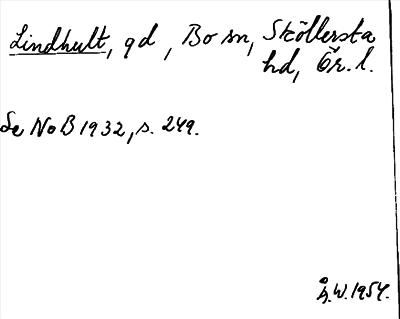 Lindhult, gd, Bo sn, Sköllersta
hd, Ör. l.
Se NoB 1932, s. 249.
Å.W. 1954.